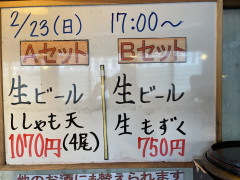 2/23(日) 17:00〜
Aセット Bセット
生ビール 生ビール
ししゃも天 生もずく
1070円(4尾) 750円
他のお酒にも替えられます